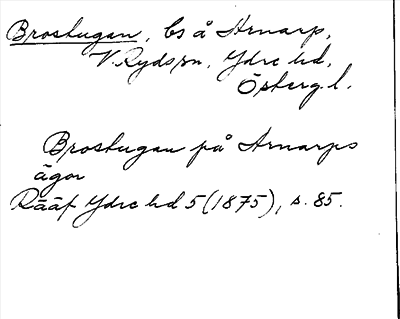 Brostugan, bs å Arnarp,
V. Ryds sn, Ydre hd,
Östergl.
Brostugan på Arnarps
ägor
Rääf Ydre hd 5 (1875), s. 85.